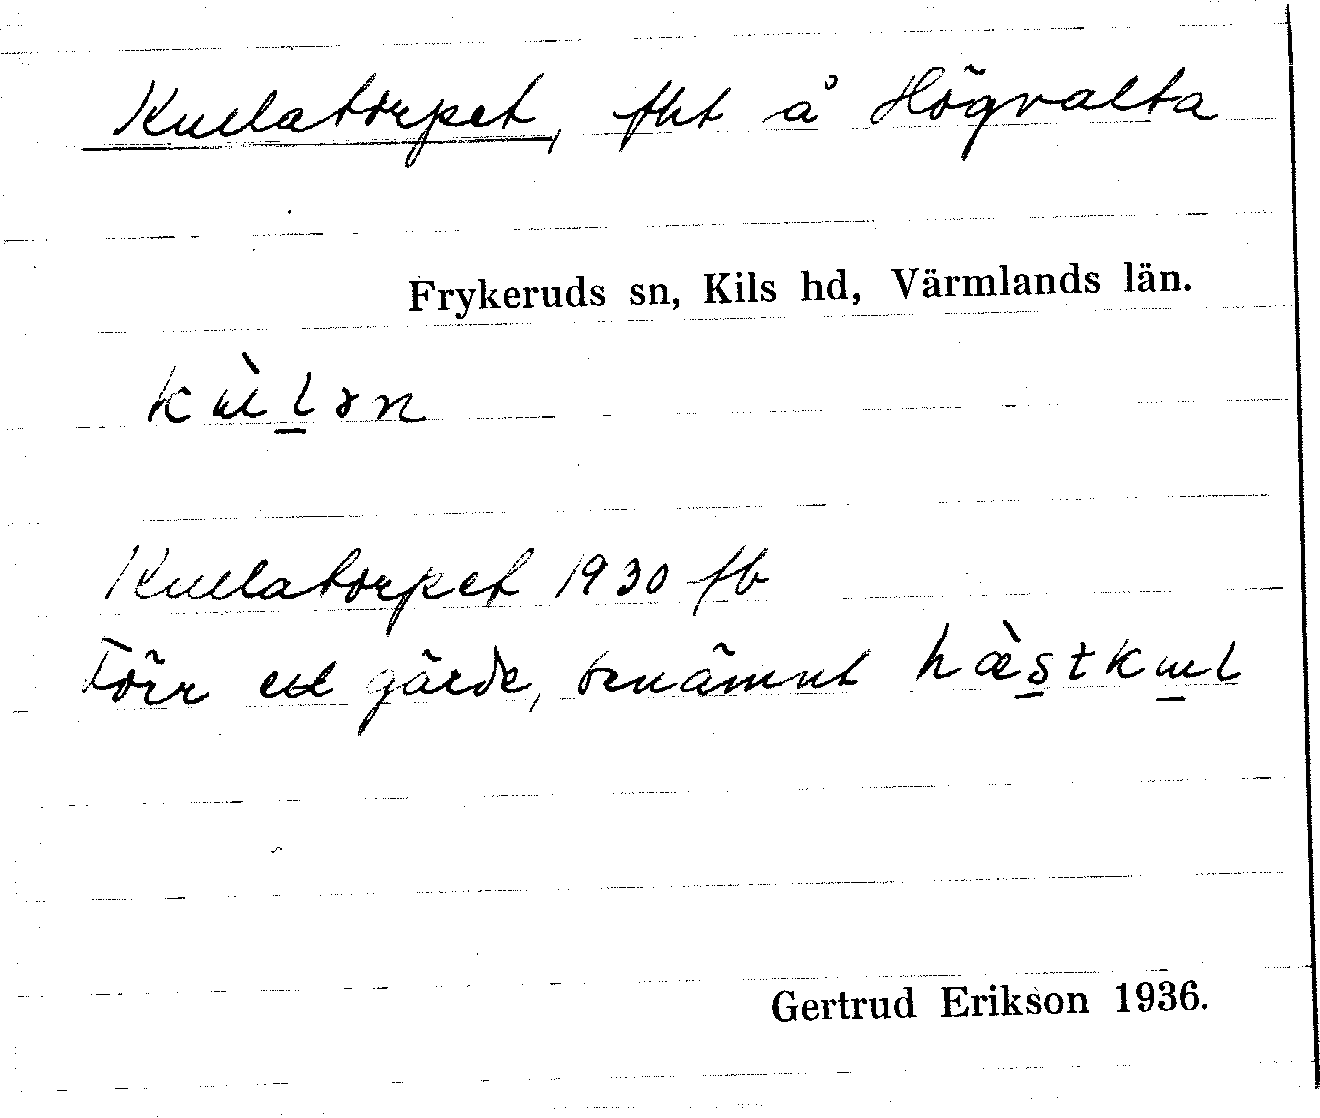 Kullatorpet, fht å Högvalta
Frykeruds sn, Kils hd, Värmlands län.
kùlən
Kullatorpet 1930 fb
Förr ett gärde, benämnt hæ̀stkul
Gertrud Erikson 1936.